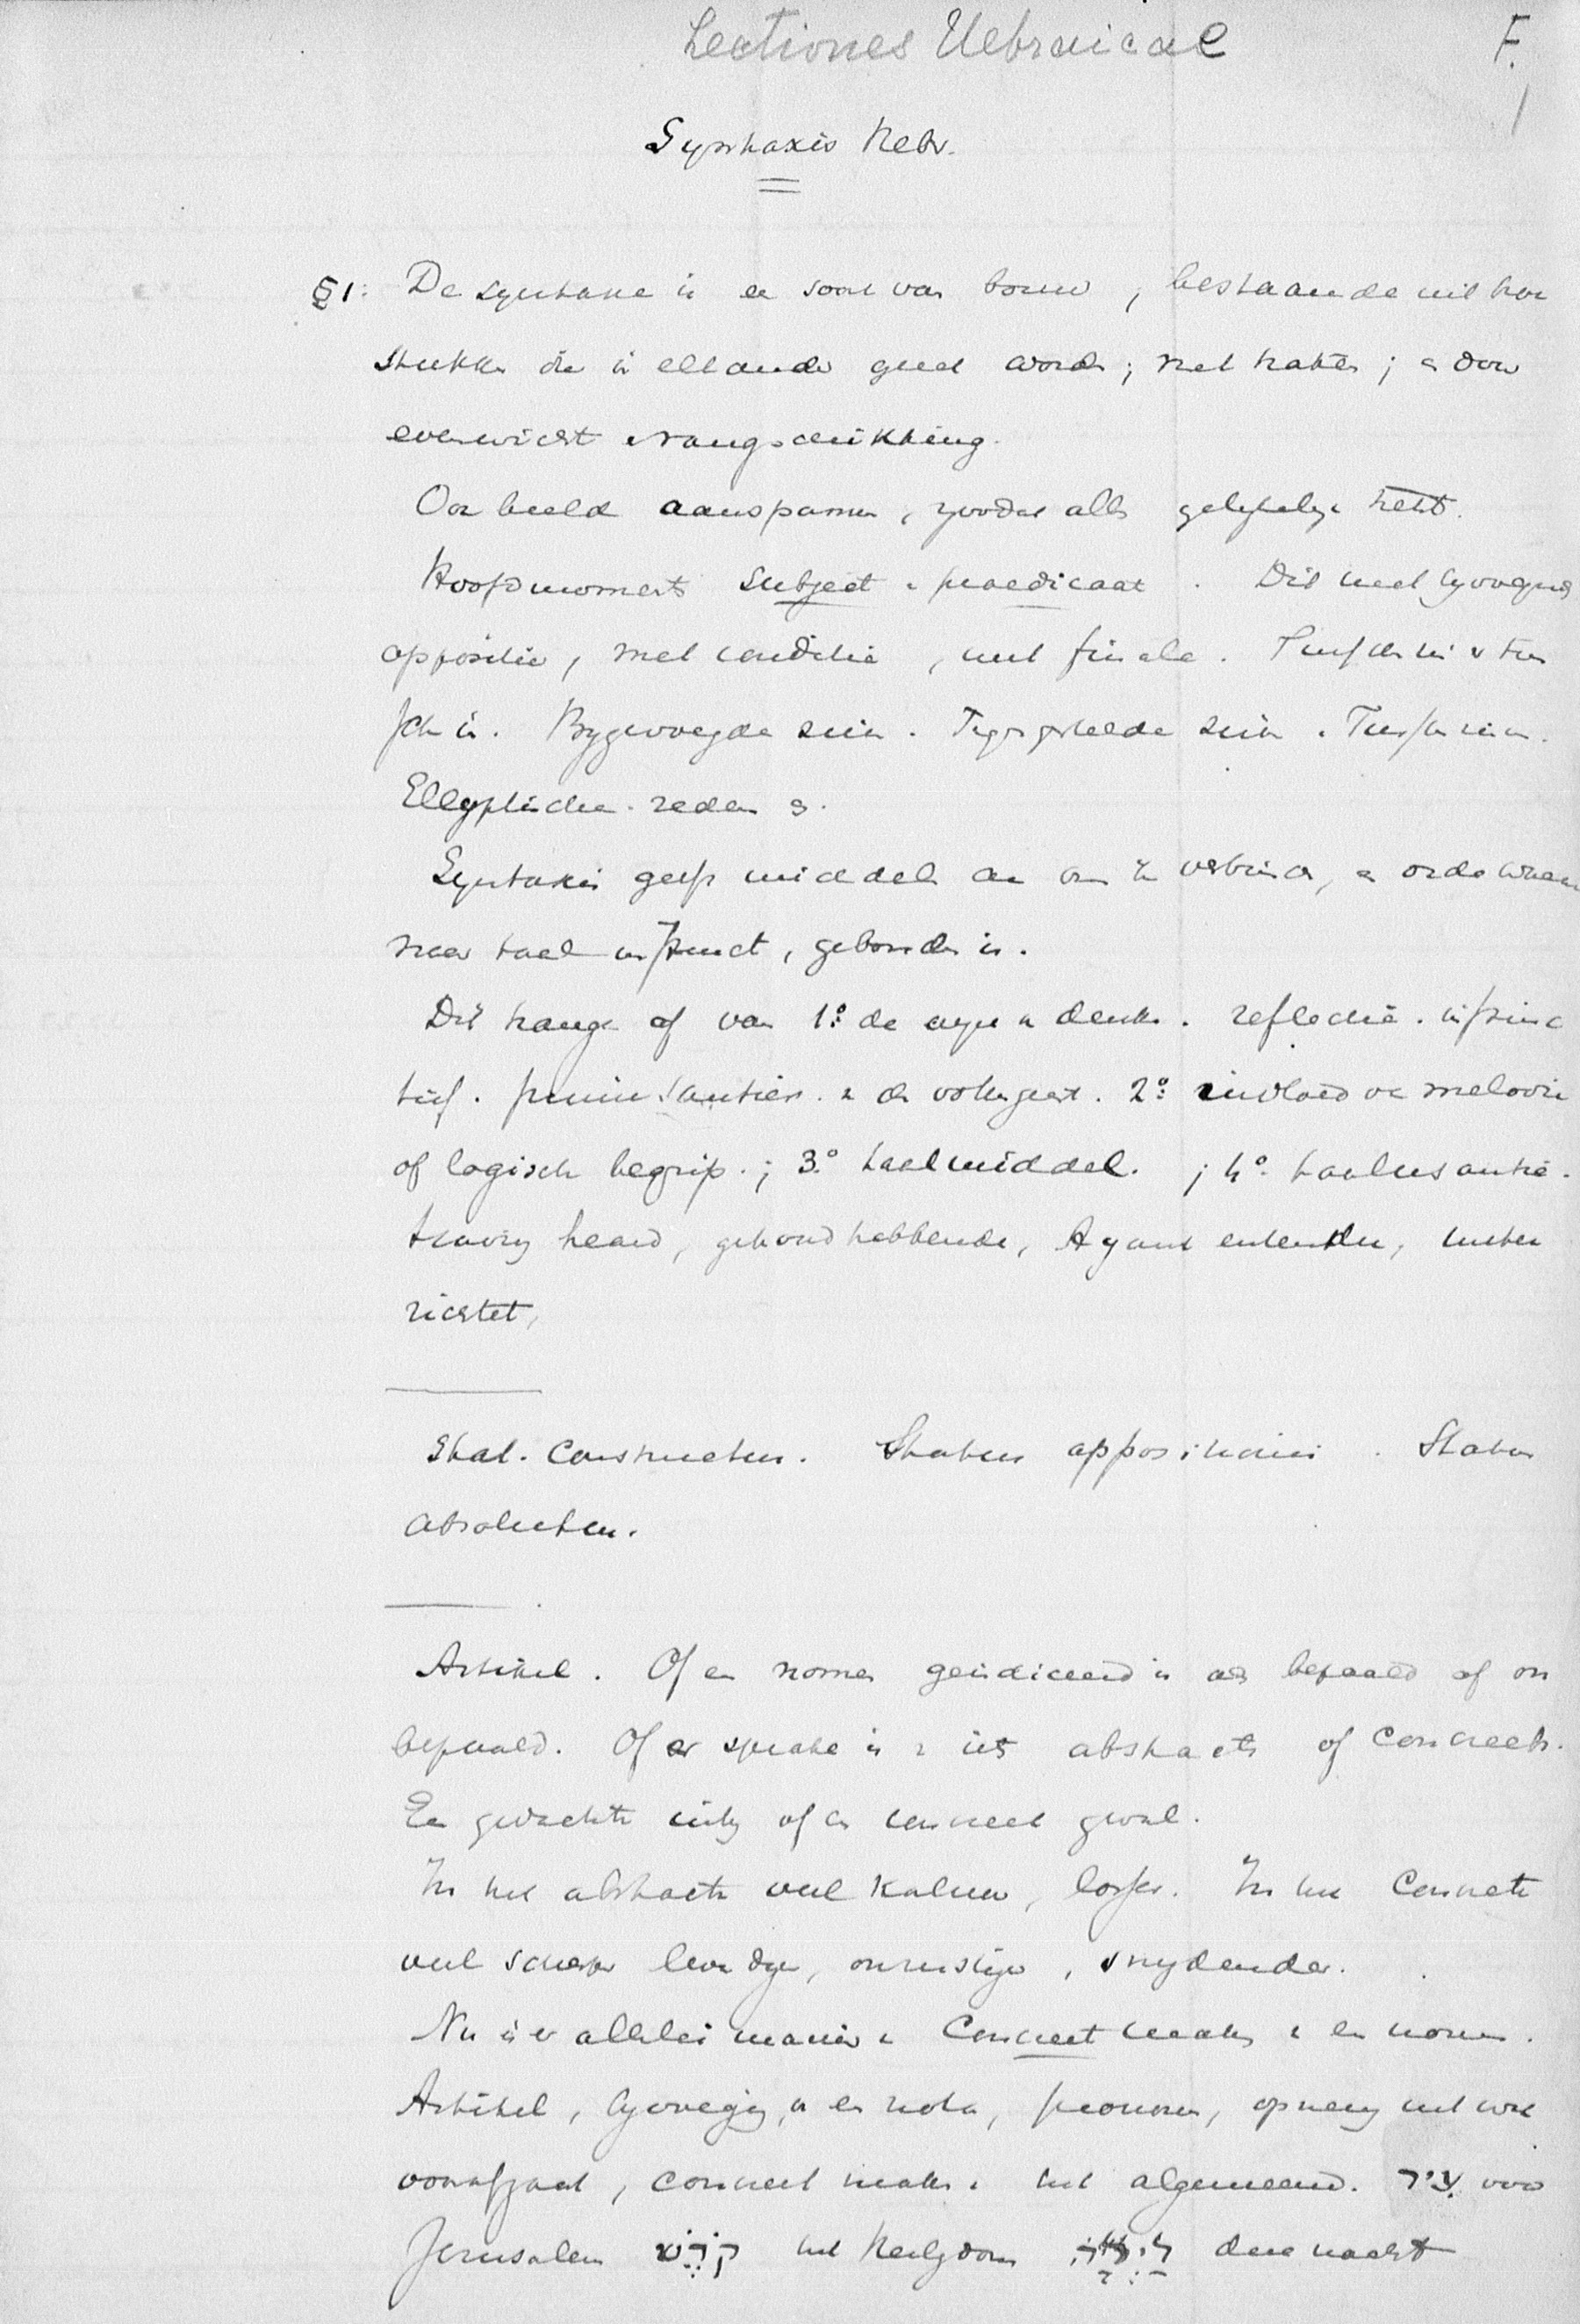 Lectiones Hebraicae F.
1
Syntaxis Hebr.
§1. De syntaxe is ee soort van bouw, bestaande uit hou
stukken die in elkander gezet word; met haken; a door
evenwicht & rangschikking.
Oor beeld aanspannen, zoodat alls gelykelyk trekt.
Hoofdmoments Subject & praedicaat. Dit met bijvoegend
oppositie, met conditie, met finale.
Bygevoegde zin. Tegengestelde zin. Tusschenzin.
Ellyptische reden
Syntaxis geeft middel an om te verbinden, a orde waar
naar taal instinct, gebonden is.
Dit hangt af van 1º de wyze v denken. reflectie. instinc
tief. & de volksgeest. 2º invloed v melodie
of logisch begrip.; 3º taalmiddel. ; 4º taalusantie.
having heard, gehoord hebbende, Ayant entendu, unter
richtet,
Stat. Constructus. Status appositionis. Status
absolutus.
Artikel. Of en nomen geindiceerd is als bepaald of on
bepaald. Of er sprake is v iets abstracts of concreets.
Een gedachte of en concreet geval.
In het abstracte veel kalmer, losser. In het Concrete
veel scherper levendiger, onrustiger, snydender.
Nu is er allerlei manier v Concreet maken v en nomen.
Artikel, bijvoeging v en nota, pronomen, opneming uit wat
voorafgaat, concreet maken v het algemeene. עיר voor
Jerusalem קדש het Heiligdom הלילה deze nacht